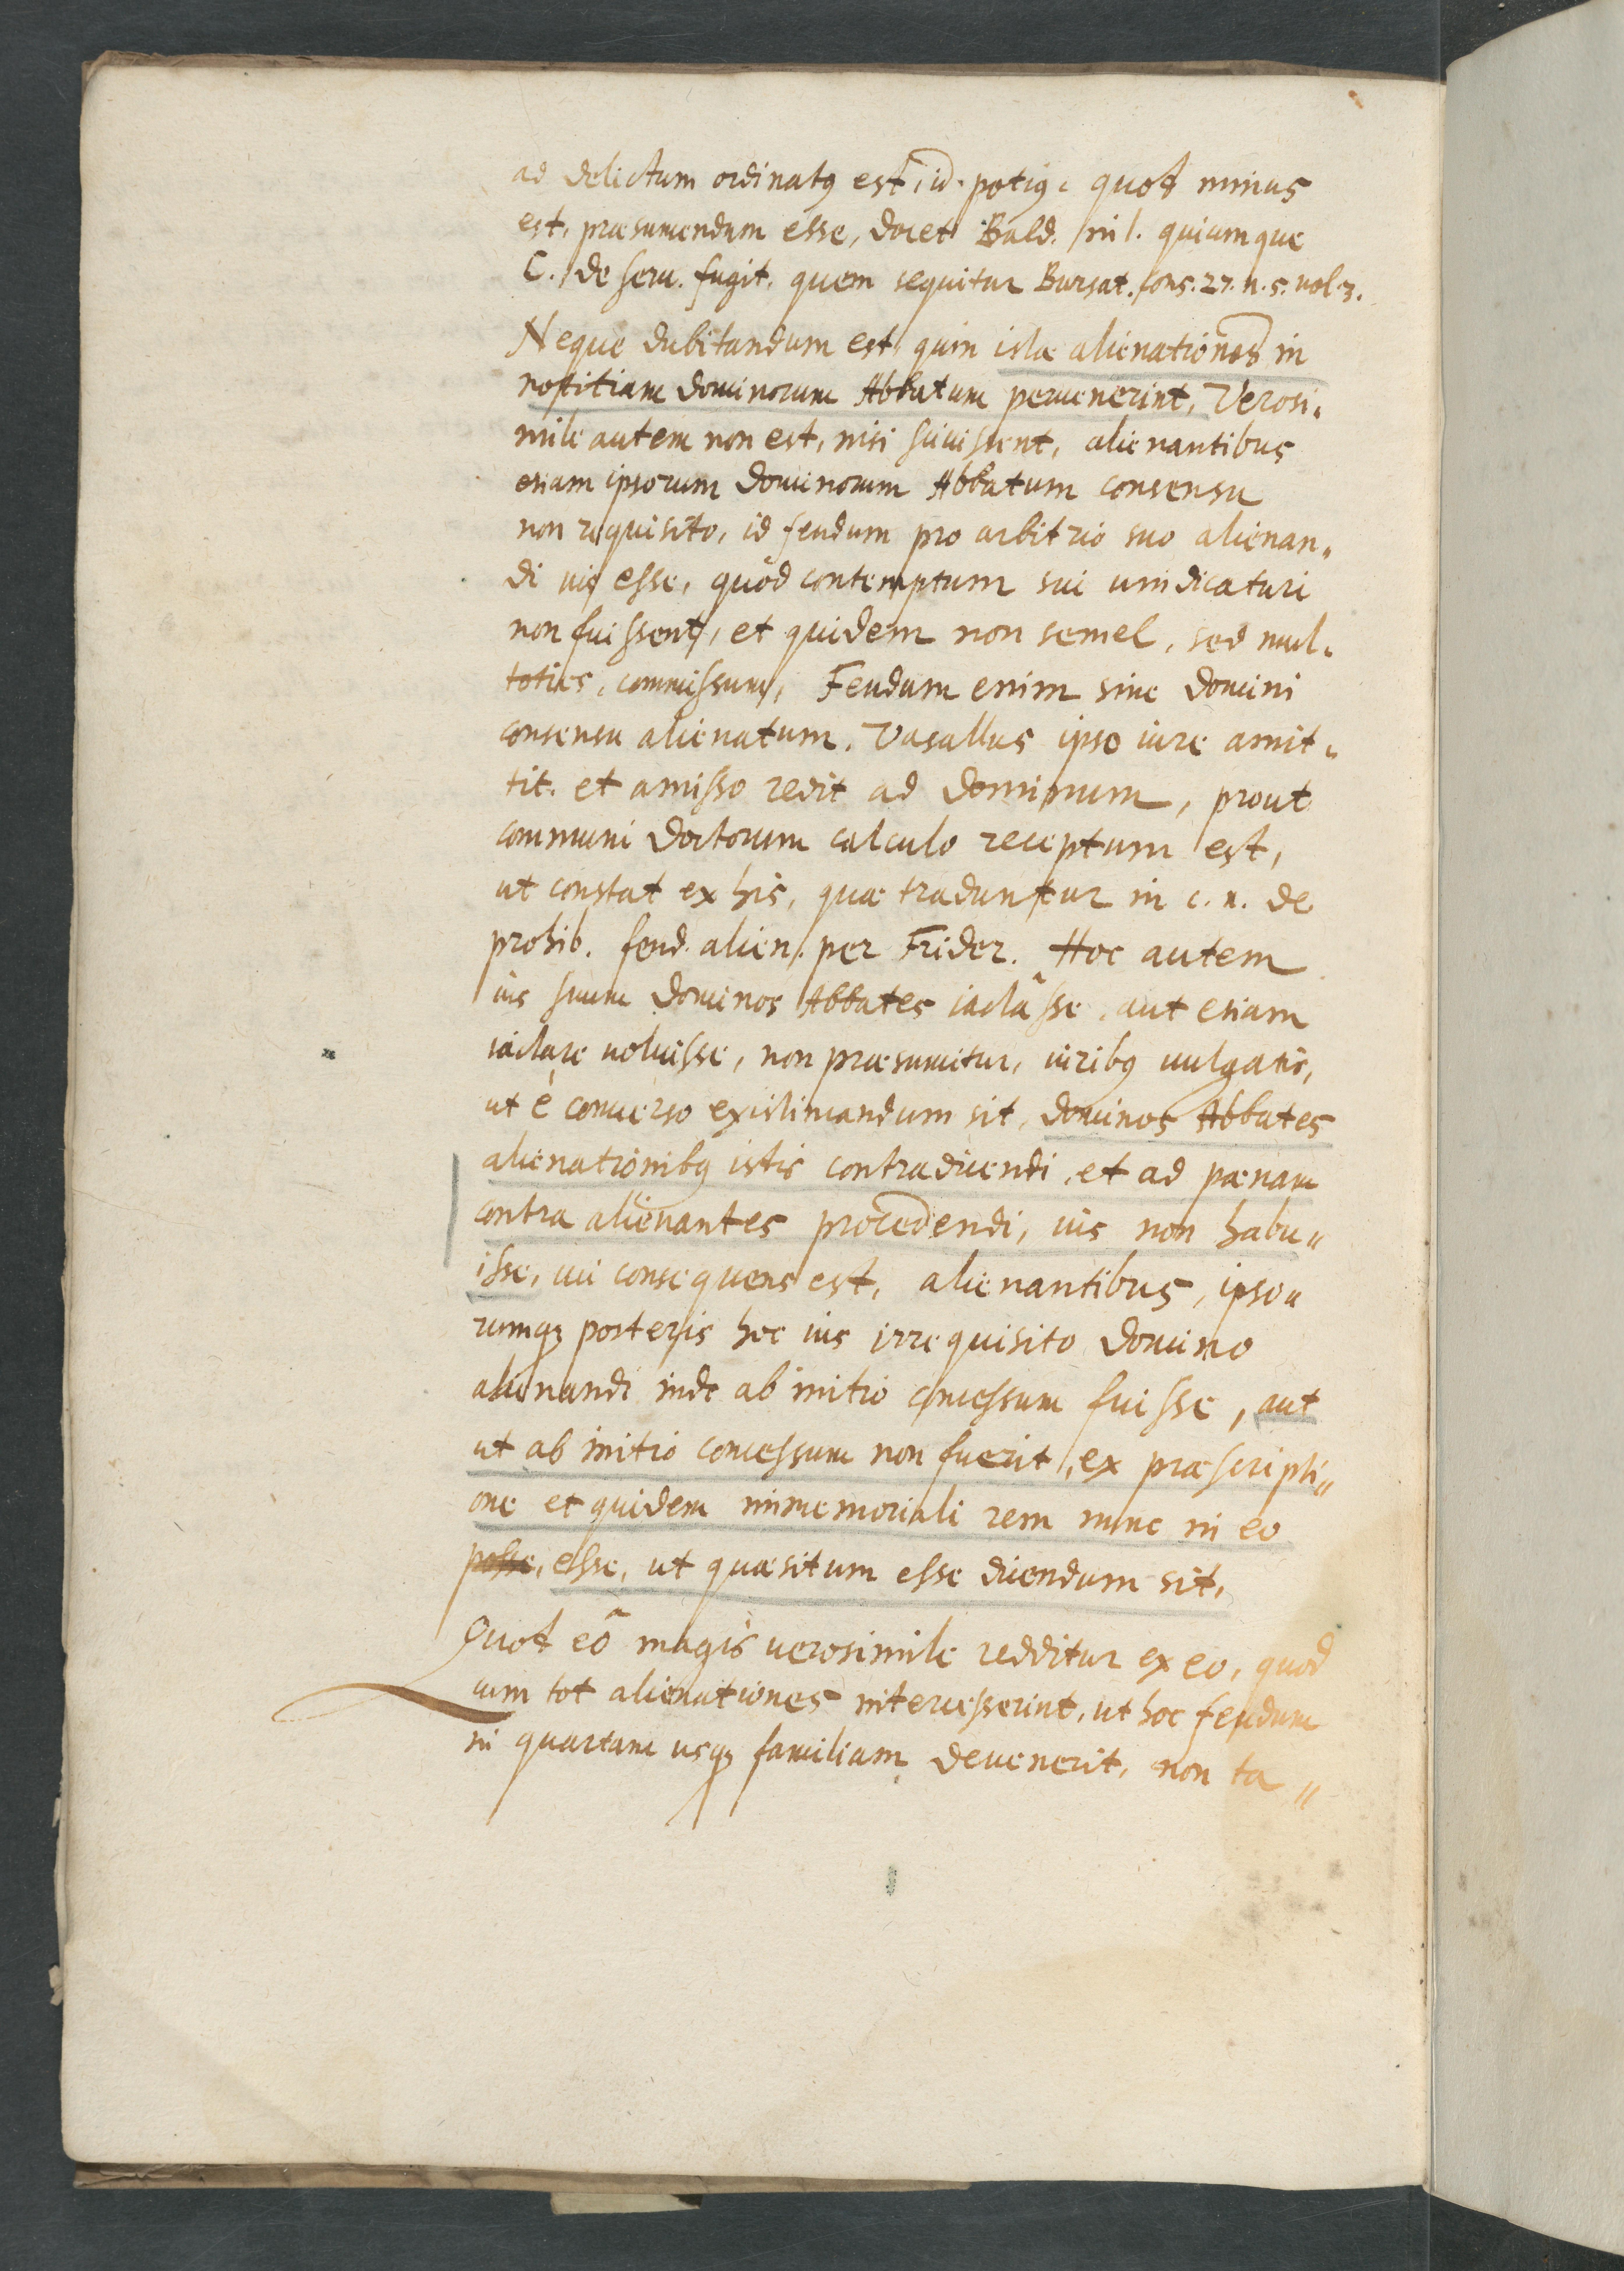 ad delictum ordinatꝰ est, id. potiꝰ. quod minus
est, præsumendum esse, docet Bald. in l. quicumque
C. de seru. fugit. quem sequitur Bursat. cons. 27. n. 5. uol. 3.
Neque dubitandum est, quin istæ alienationes in
notitiam dominorum Abbatum peruenerint, Verosi-
mile autem non est, nisi sciuissent, alienantibus
etiam ipsorum dominorum Abbatum consensu
non requisito, id feudum pro arbitrio suo alienan-
di ius esse, quòd contemptum sui uindicaturi
non fuissent, et quidem non semel, sed mul-
toties, commissum, Feudum enim sine domini
consensu alienatum, Vasallus ipso iure amit-
tit. et amisso redit ad dominum, prout
communi doctorum calculo receptum est,
ut constat ex his, quæ traduntur in c. n. de
prohib. feud. alien. per Frider. Hoc autem
ius suum dominos Abbates iactâsse, aut etiam
iactare uoluisse, non præsumitur, iuribꝰ uulgatis,
ut è conuerso existimandum sit, dominos Abbates
alienationibꝰ istis contradicendi, et ad pœnam
contra alienantes procedendi, ius non habu-
isse, cui consequens est, alienantibus, ipso-
rumqꝫ posteris hoc ius irrequisito domino
alienandi inde ab initio concessum fuisse, aut
ut ab initio concessum non fuerit, ex præscripti-
one et quidem immemoriali rem nunc in eo
posse, esse, ut quæsitum esse dicendum sit.
Quod eô magis uerosimile redditur ex eo, quod
cum tot alienationes intercesserint, ut hoc feudum
in quartam usqꝫ familiam deuenerit, non ta-